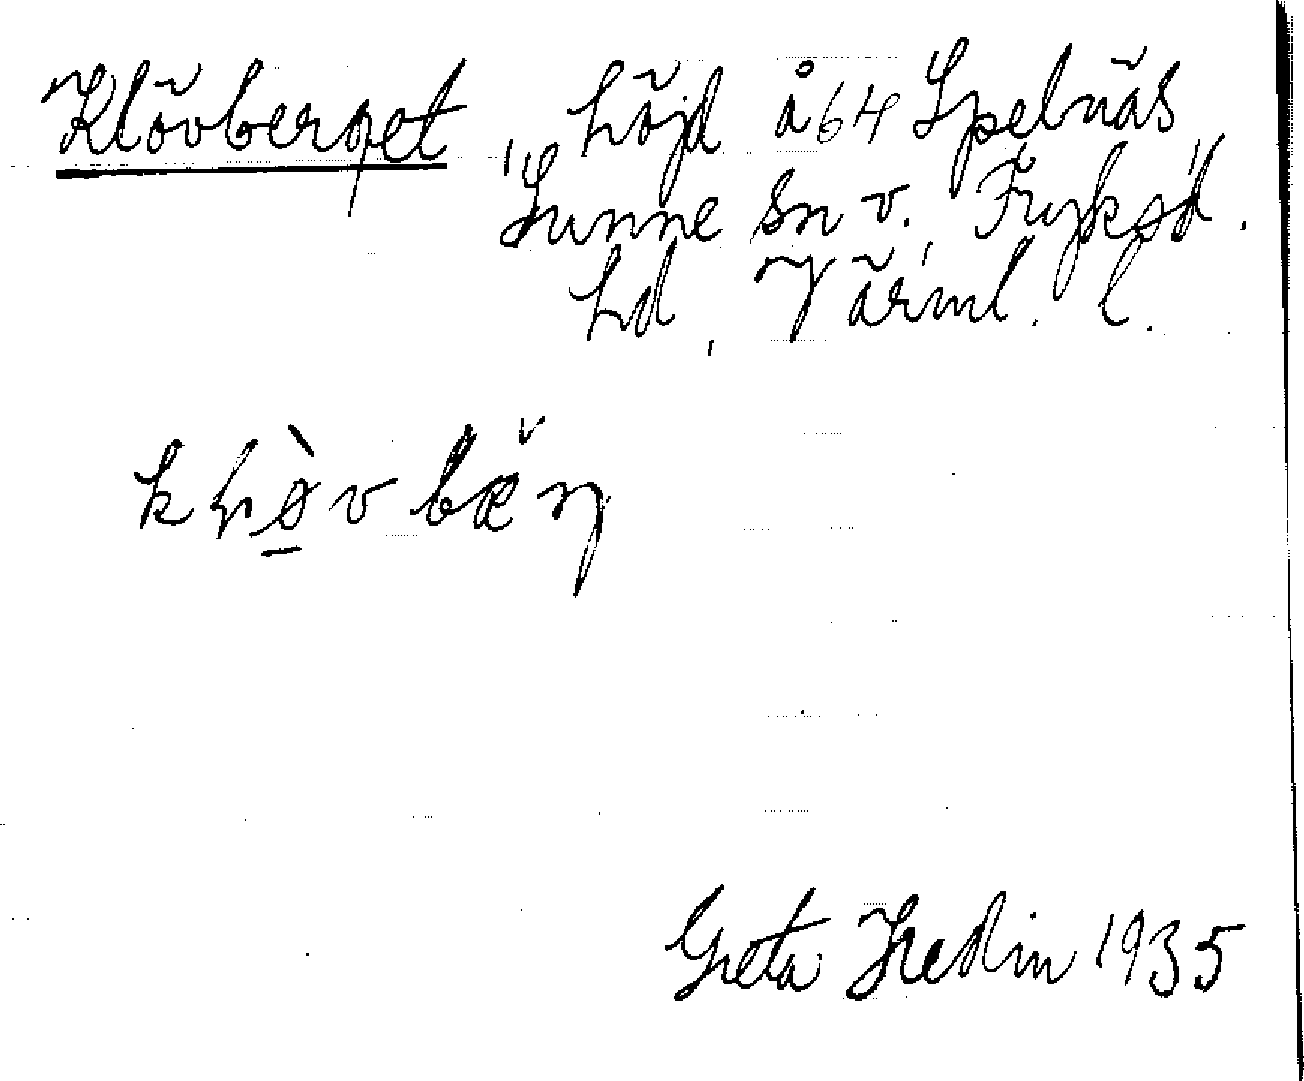 Klövberget höjd å 64 Spelnäs,
Sunne sn v. Fryksd.
hd, Värml. l.
kḷø̀vbæ̌ŋ
Greta Hedin 1935